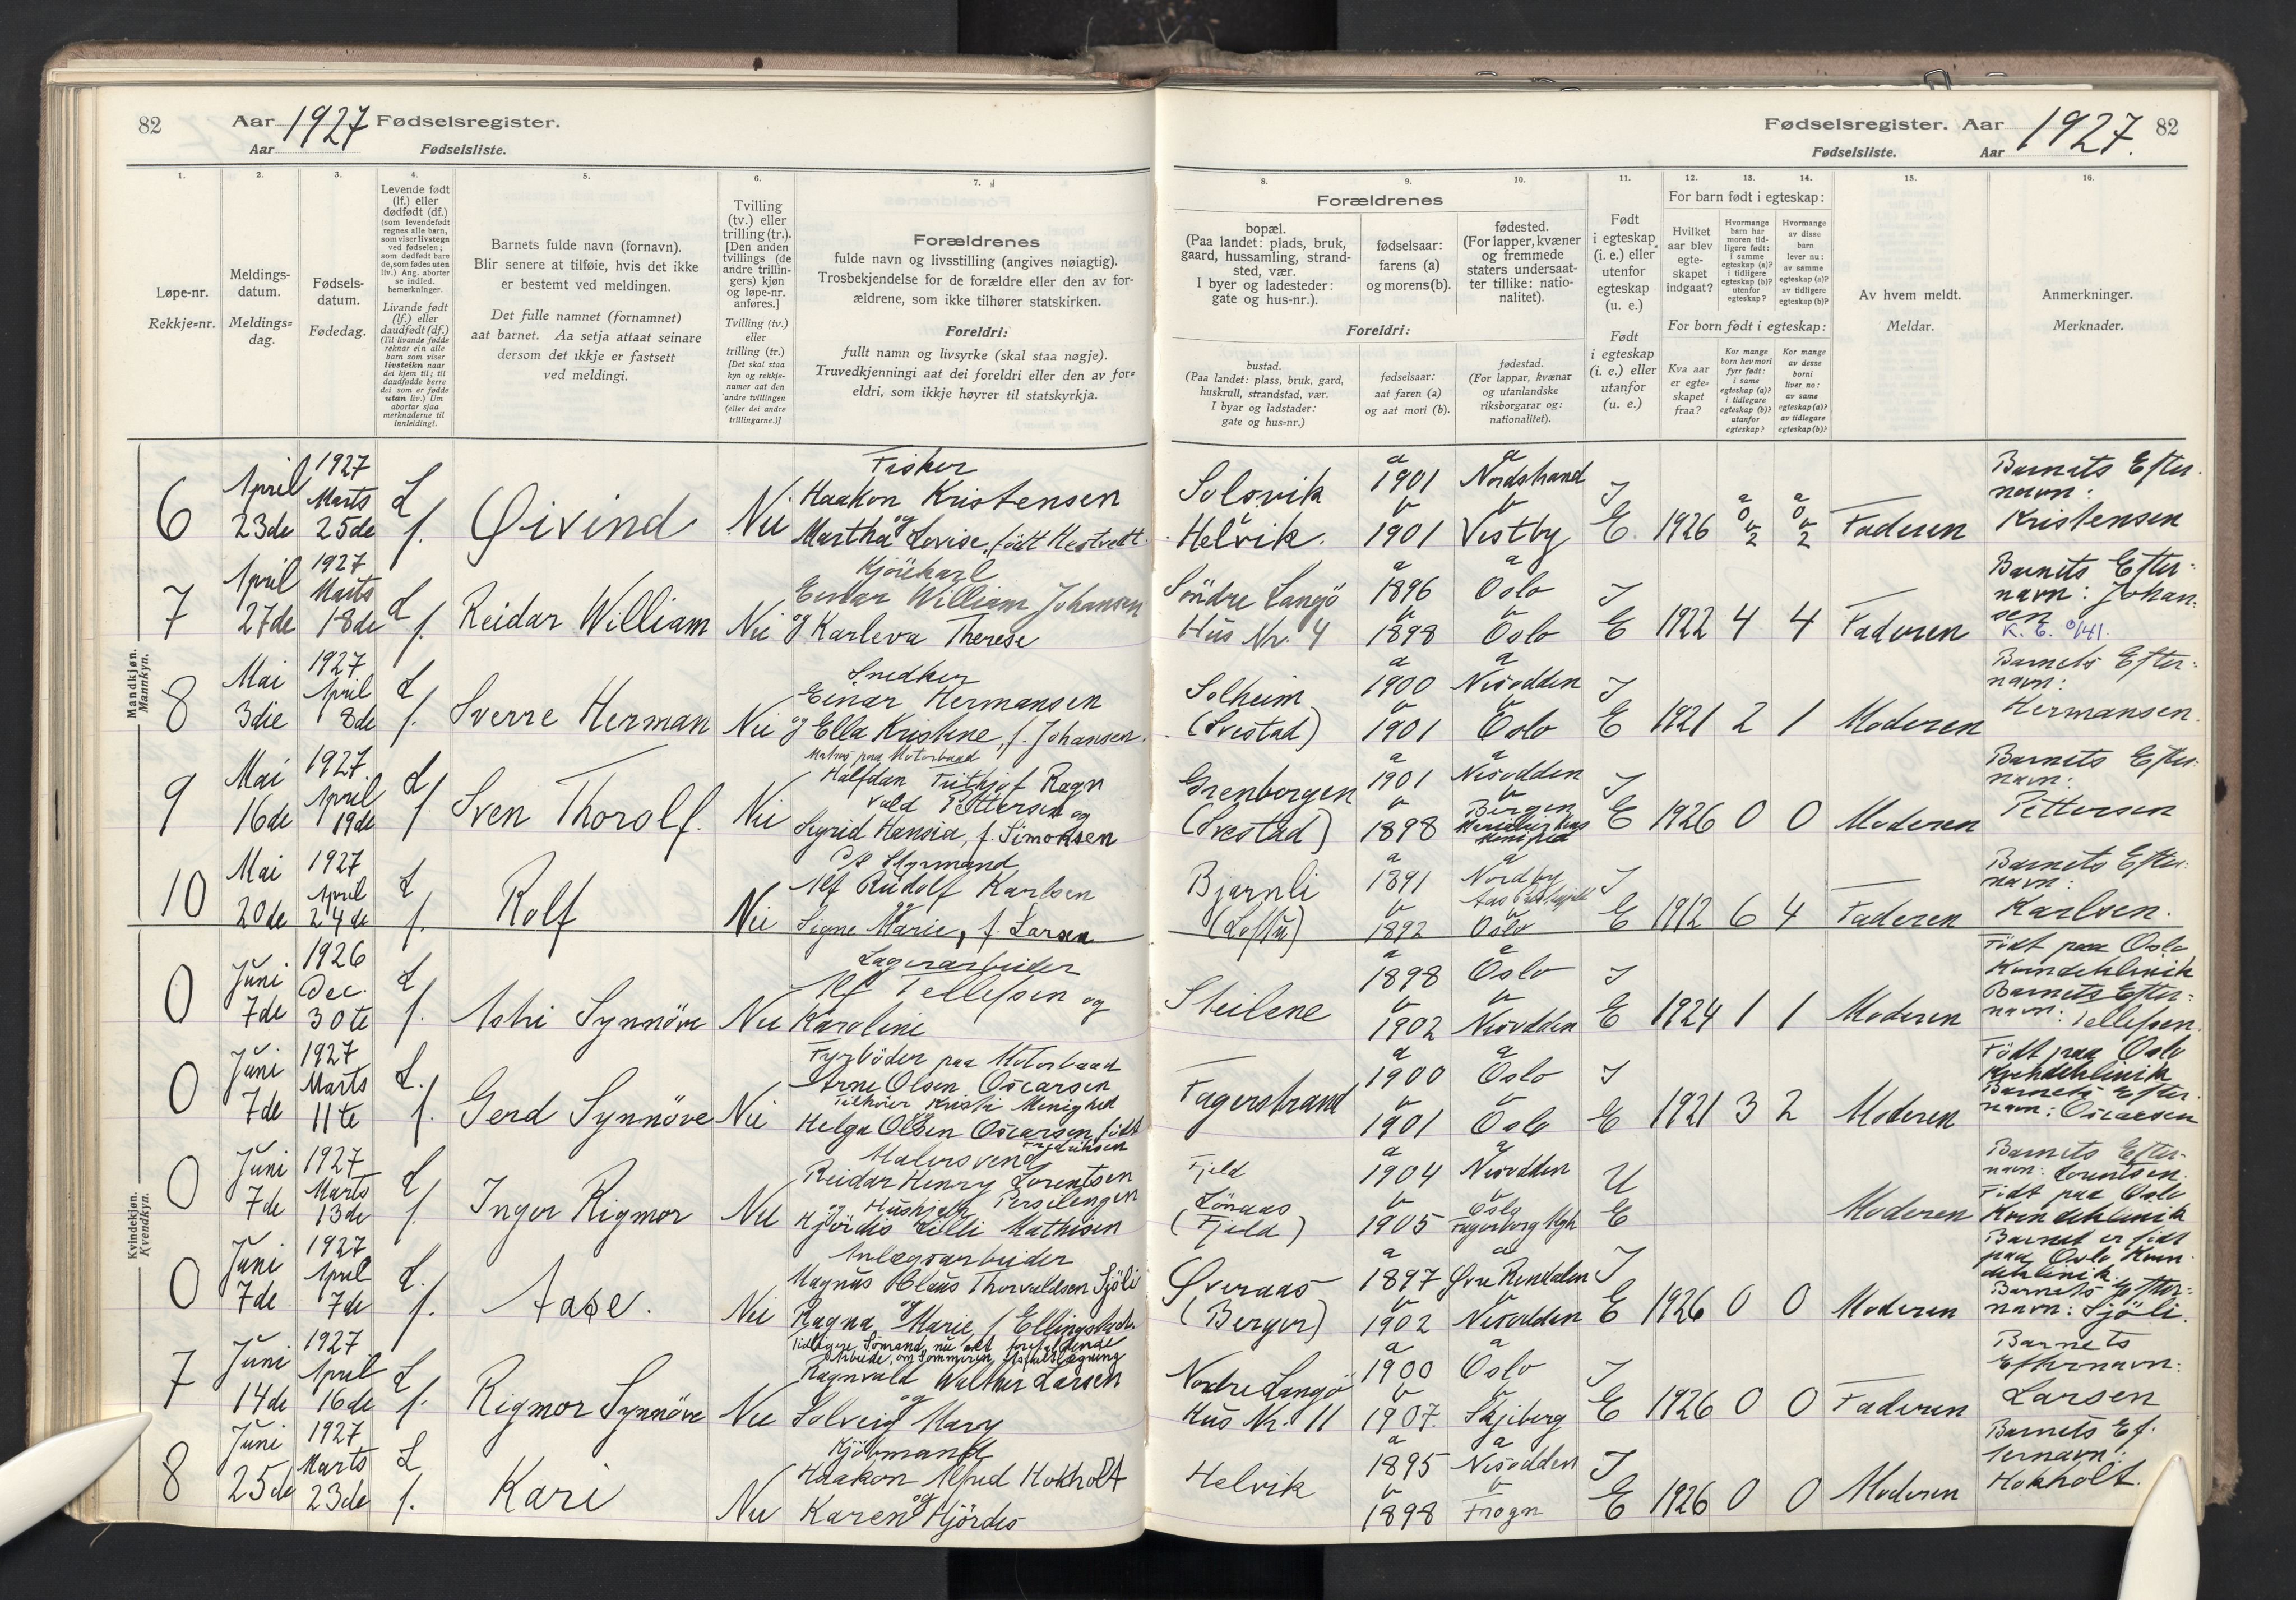 82
Aar 1927 Fødselsregister.
Aar
Fødselsliste.
1.
Løpe-nr.
Rekkje-nr.
2.
Meldings-
datum.
Meldings-
dag.
3.
Fødsels-
datum.
Fødedag.
4.
Levende født
(lf.) eller
dødfødt (df.)
(som levendefødt
regnes alle barn,
som viser livstegn
ved fødselen;
som dødfødt bare
de, som fødes uten
liv.) Ang. aborter
se indled.
bemerkninger.
Livande født
(lf.) eller
daudfødt (df.)
(Til livande fødde
reknar ein alle
barn som viser
livsteikn naar
dei kjem til; til
daudfødde berre
dei som er fødde
utan liv.) Um
abortar sjaa
merknaderne til
innleidingi.
5.
Barnets fulde navn (fornavn).
Blir senere at tilføie, hvis det ikke
er bestemt ved meldingen.
Det fulle namnet (fornamnet)
aat barnet. Aa setja attaat seinare
dersom det ikkje er fastsett
ved meldingi.
6.
Tvilling
(tv.) eller
trilling (tr.).
[Den anden
tvillings (de
andre trillin-
gers) kjøn
og løpe-nr.
anføres.]
Tvilling (tv.)
eller
trilling (tr.)
[Det skal staa
kyn og rekkje-
numer aat den
andre tvillingen
(eller dei andre
trillingarne.)]
7.
Forældrenes
fulde navn og livsstilling (angives nøiagtig).
Trosbekjendelse for de forældre eller den av for-
ældrene, som ikke tilhører statskirken.
Foreldri:
fullt namn og livsyrke (skal staa nøgje).
Truvedkjenningi aat dei foreldri eller den av for-
eldri, som ikkje høyrer til statskyrkja.
Mandkjøn.
Mannkyn.
6
April
23de
1927
Marts
25de
L
f.
Øivind
Nei
Fisker
Haakon Kristensen
og
Martha Lovise, født Hestvett.
7
April
27de
1927
Marts
18de
L
f.
Reidar William
Nei
Kjörekarl
Einar William Johansen
og Karleva Therese
8
Mai
3die
1927
April
8de
L
f.
Sverre Herman
Nei
Snedker
Einar Hermansen
og Ella Kristine, f. Johansen.
9
Mai
16de
1927
April
19de
L
f.
Sven Thorolf.
Nei
Matros paa Motorbaad
Halfdan Frithjof Ragn
vald Pettersen og
Sigrid Hansia, f. Simonsen
10
Mai
20de
1927
April
24de
L
f.
Rolf
Nei
D/S Styrmand
Alf Rudolf Karlsen
og
Signe Marie, f. Larsen
Kvindekjøn.
Kvendkyn.
0
Juni
7de
1926
Dec.
30te
L
f.
Astri Synnöve
Nei
Lagerarbeider
Alf Tellefsen og
Karoline
0
Juni
7de
1927
Marts
11te
L.
f.
Gerd Synnöve
Nei
Fyrböder paa Motorbaad
Arne Olsen Oscarsen
Tilhörer Kristi Menighed
Helga Olsen Oscarsen, födt
Fredriksen
0
Juni
7de
1927
Marts
13de
L
f.
Inger Rigmor
Nei
Malersvend
Reidar Henry Lorentsen
og Hushjelp Persilengen
Hjördis Lilli Mathisen
0
Juni
7de
1927
April
7de
L.
f.
Aase.
Nei
Anlægsarbeider
Magnus Olaus Thorvaldsen Sjöli
og
Ragna Marie, f. Ellingstad.
7
Juni
14de
1927
April
16de
L
f.
Rigmor Synnöve
Nei
Tidligere Sömand, nu alt forefaldende
Arbeide, om Sommeren Asfaltlægning
Ragnvald Walther Larsen
og
Solveig Mary
8
Juni
25de
1927
Marts
23de
L
f.
Kari
Nei
Kjöbmand
Haakon Alfred Hokholt
og
Karen Hjördis
Fødselsregister. Aar 1927. 82
Fødselsliste. Aar
8.
Forældrenes
bopæl.
(Paa landet: plads, bruk,
gaard, hussamling, strand-
sted, vær.
I byer og ladesteder:
gate og hus-nr.).
Foreldri:
bustad.
(Paa landet: plass, bruk, gard,
huskrull, strandstad, vær.
I byar og ladstader:
gate og hus-nr.)
9.
fødselsaar:
farens (a)
og morens (b).
fødselsaar:
aat faren (a)
og aat mori (b).
10.
fødested.
(For lapper, kvæner
og fremmede
staters undersaat-
ter tillike: natio-
nalitet).
fødestad.
(For lappar, kvænar
og utanlandske
riksborgarar og:
nationalitet).
11.
Født
i egteskap
(i. e.) eller
utenfor
egteskap
(u. e.)
Født
i egteskap
(i. e.) eller
utanfor
(u. e.)
12.
13.
14.
For barn født i egteskap:
Hvilket
aar blev
egte-
skapet
indgaat?
Hvormange
barn har
moren tid-
ligere født:
i samme
egteskap (a)?
i tidligere
egteskap (b)?
utenfor
egteskap?
Hvormange
av disse
barn
lever nu:
av samme
egteskap (a)?
av tidligere
egteskap (b)?
For born født i egteskap:
Kva aar
er egte-
skapet
fraa?
Kor mange
born hev mori
fyrr født:
i same
egteskap (a)?
i tidlegare
egteskap (b)?
utanfor
egteskap?
Kor mange
av desse
borni
liver no:
av same
egteskap (a)?
av tidlegare
egteskap (b)?
15.
Av hvem meldt.
Meldar.
16.
Anmerkninger.
Merknader.
Solsvik
Helvik.
a
1901
b
1901
a
Nordstrand
b
Vestby
I
E.
1926
a
0
b
2
a
0
b
2
Faderen
Barnets Efter-
navn:
Kristensen
Söndre Langö
Hus Nr. 4
a
1896
b
1898
a
Oslo
b
Oslo
I
E
1922
4
4
Faderen
Barnets Efter-
navn: Johan-
sen
Solheim
(Svestad)
a
1900
b
1901
a
Nesodden
b
Oslo
I
E
1921
2
1
Moderen
Barnets Efter-
navn:
Hermansen.
Grenborgen
(Svestad)
a
1901
b
1898
a
Nesodden
b
Bergen
I
E
1926
0
0
Moderen
Barnets Efter-
navn:
Pettersen
Bjarnli
a
1891
b
1892
a
Nordby
b
Oslo
I
E
1912
6
4
Faderen
Barnets Efter-
navn:
Karlsen.
Steilene
a
1898
b
1902
a
Oslo
b
Nesodden
I
E
1924
1
1
Moderen
Födt paa Oslo
Kvindeklinik
Barnets Efter-
navn: Tellefsen.
Fagerstrand
a
1900
b
1901
a
Oslo
b
Oslo
I
E
1921
3
2
Moderen
Födt paa Oslo
Kvindeklinik
Barnets Efter-
navn: Oscarsen
Fjeld
Lönaas
(Fjeld)
a
1904
b
1905
a
Nesodden
b
Oslo
U
E
Moderen
Barnets Efter-
navn: Lorentsen.
Födt paa Oslo
Kvindeklinik
Øveraas
(Berger)
a
1897
b
1902
a
Øvre Rendalen
b
Nesodden
I
E
1926
0
0
Moderen
Barnet er födt
paa Oslo Kvin-
deklinik.
Barnets Efter-
navn: Sjöli.
Nordre Langö
Hus Nr. 11
a
1900
b
1907.
a
Oslo
b
Skjeberg
I
E
1926
0
0
Faderen
Barnets
Efternavn:
Larsen
Helvik
a
1895
b
1898
a
Nesodden
b
Frogn
I
E
1926
0
0
Moderen
Barnets Ef-
ternavn:
Hokholt.